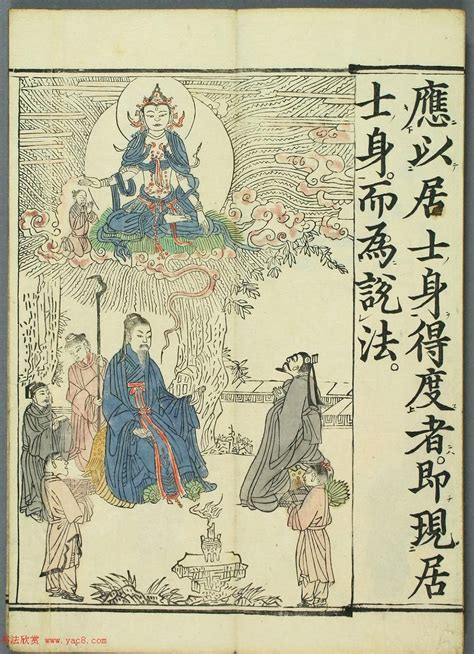 應以居士身得度者。即現居
士身。而為說法。
书法欣赏 www.yac8.com